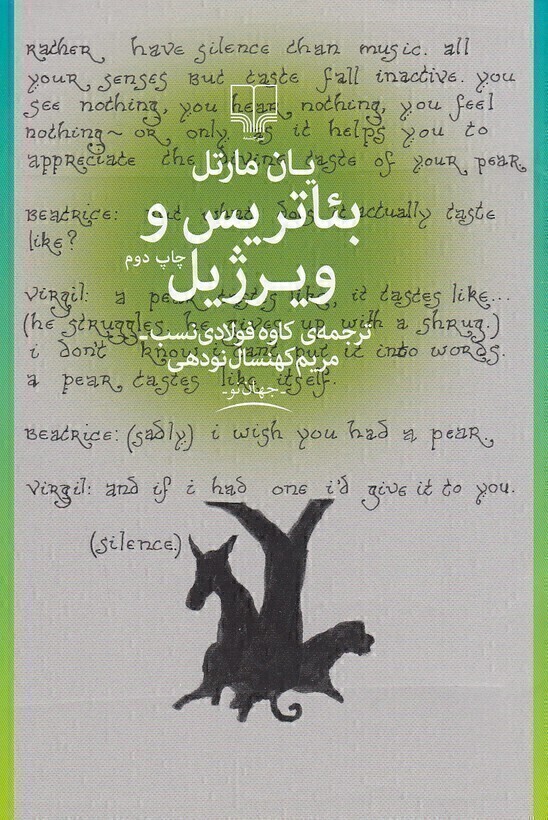 Rather have silence than music. all
your senses but taste fall inactive. you
see nothing, you hear nothing, you feel
nothing~ or only as it helps you to
appreciate the divine taste of your pear.
یان مارتل
Beatrice: but what does it actually taste
بئاتریس و
like?
چاپ دوم
ویرژیل
Virgil: a pear tastes like, it tastes like...
(he struggles. he gives up with a shrug.)
ترجمه‌ی کاوه فولادی‌نسب ـ
i don't know. i can't put it into words.
مریم کهنسال نودهی
a pear tastes like itself.
ـ جهان‌نو ـ
Beatrice: (sadly) i wish you had a pear.
Virgil: and if i had one i'd give it to you.
(silence.)